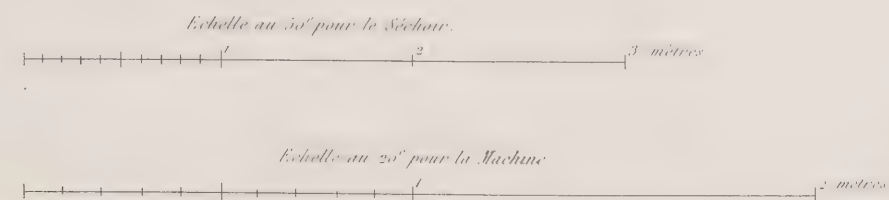 Echelle au 50e pour le Séchoir.
1 2 3 mètres
Echelle au 20e pour la Machine
1 2 mètres